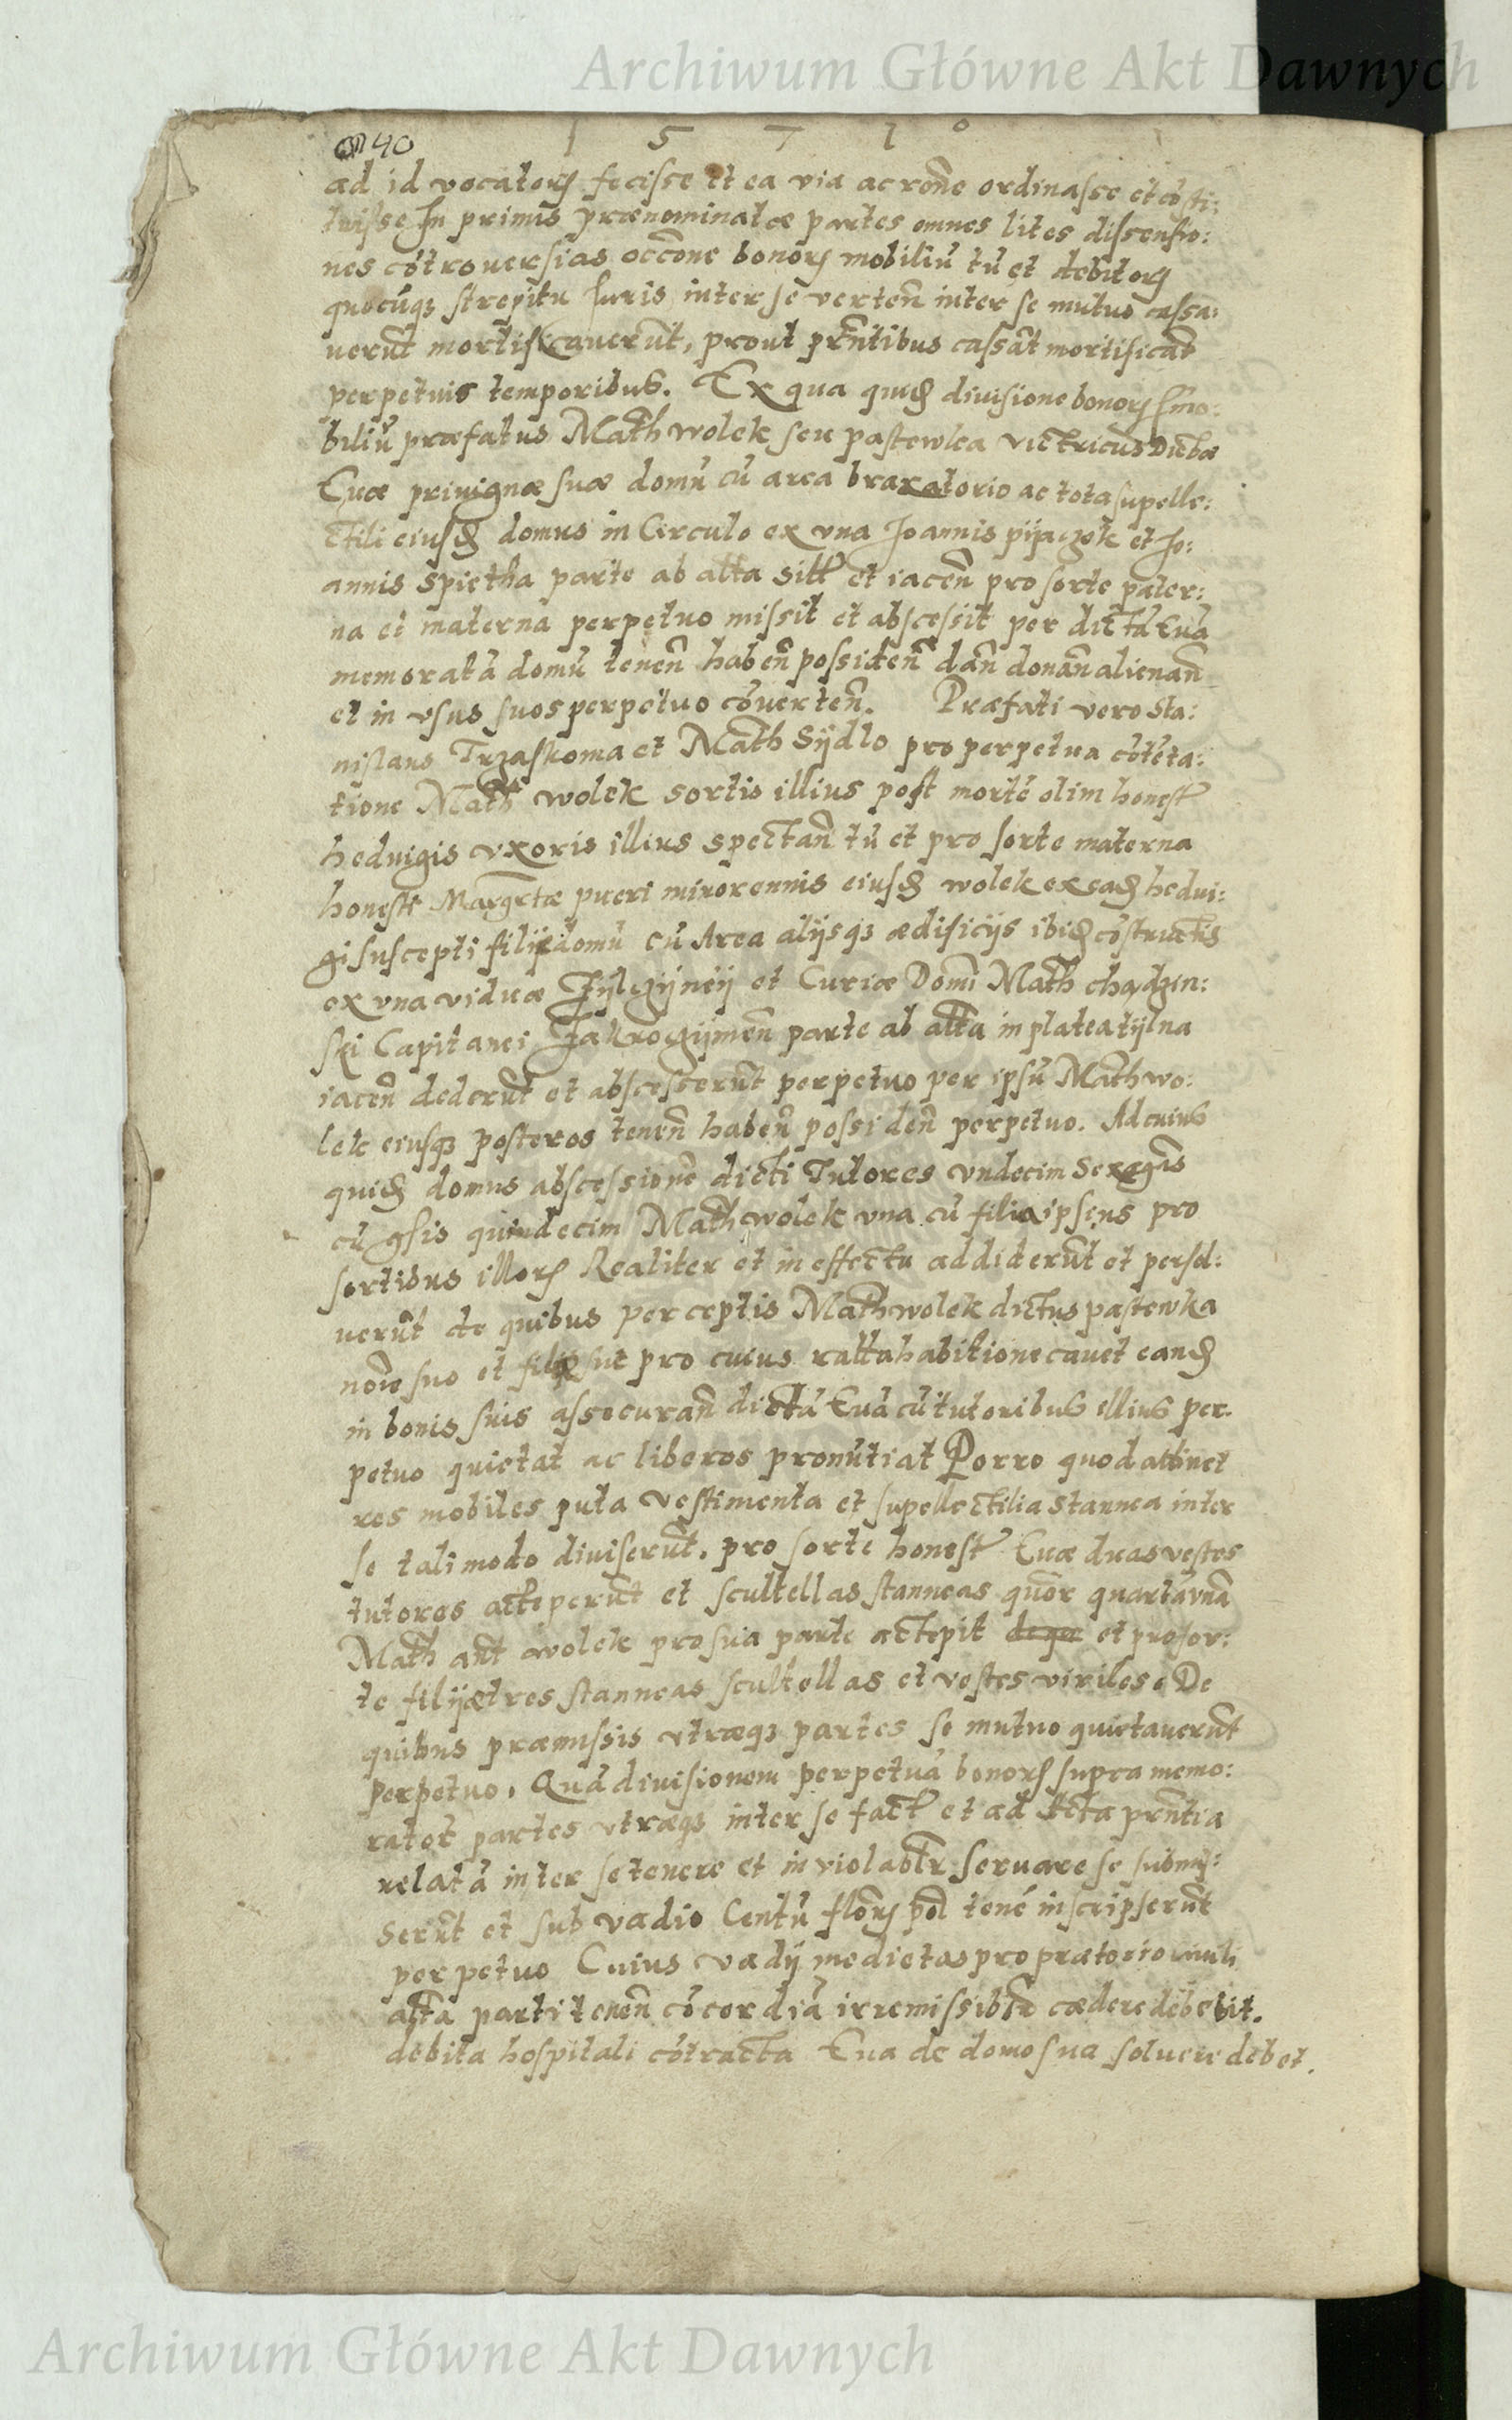 Archiwum Główne Akt Dawnych
40
1 5 7 1°
ad id vocatorꝭ fecisse et ea via ac rōne ordinasse et cōsti:
tuisse In primis prænominatæ partes omnes lites dissensio:
nes cōtrouersias occōne bonorꝭ mobiliū tū et debitorꝭ
quocūqꝫ strepitu Iuris inter se verten̄ inter se mutuo cassa:
uerūt mortificauerūt, prout prn̄tibus cassāt mortificāt
perpetuis temporibus. Ex qua quidꝭ diuisione bonorꝭ Imo:
biliū præfatus Math wolek seu pastewka victricus
Euæ priuignæ suæ domū cū area braxatorio ac tota supelle:
ctili eiusdꝭ domus in Circulo ex vna Joannis pijaczek et Jo:
annis Spietha parte ab alta sitt et iacen̄ pro sorte pater:
na et materna perpetuo missit et abscessit per dictā Euā
memoratā domū tenen̄ haben̄ possiden̄ dan̄ donan̄ alienan̄
et in vsus suos perpetuo cōuerten̄. Præfati vero Sta:
nislaus Trzaskoma et Math Sijdlo pro perpetua cōtēta:
tione Math wolek sortis illius post mortē olim honest
heduigis vxoris illius spectan̄ tū et pro sorte materna
honesti Margetæ pueri minorennis eiusdꝭ wolek ex eadꝭ hedui:
gi suscepti filiæ domū cū Area alijsqꝫ ædificijs ibidꝭ cōstructis
ex vna viduæ Zijlzijneij et Curiæ Domi Math chądzin:
ski Capitanei Zakroczijmen̄ parte ab alta in platea tijlna
iacen̄ dederūt et abscesserūt perpetuo per ipsū Math wo:
lek eiusqꝫ posteros tenen̄ haben̄ possiden̄ perpetuo. Ad cuius
quidꝭ domus abscessionē dicti Tutores vndecim Sexagēs
cū gsis quindecim Math wolek vna cū filia ipsius pro
sortibus illorꝭ Realiter et in effectu addiderūt et persol:
uerūt de quibus perceptis Math wolek dictus pastewka
noīe suo et filiæ suæ pro cuius rattahabitione cauet eandꝭ
in bonis suis assecuran̄ dictā Euā cū tutoribus illius per
petuo quietat ac liberos pronūtiat Porro quod attinet
res mobiles puta vestimenta et supellectilia stannea inter
se tali modo diuiserūt. pro sorte honest Euæ duas vestes
tutores acceperūt et scultellas stanneas quōr quartā vnā
Math aūt wolek pro sua parte accepit et pro sor:
te filiæ tres stanneas scultellas et vestes viriles. De
quibus præmissis vtræqꝫ partes se mutuo quietauerūt
perpetuo. Quā diuisionem perpetuā bonorꝭ supra memo:
ratorꝭ partes vtræqꝫ inter se fact et ad Acta prn̄tia
relatā inter se tenere et inviolabtr seruare se submi:
serūt et sub vadio Centū florꝭ pol tenē inscripserūt
perpetuo Cuius vadij medietas pro prætorio ciuili
alta parti tenen̄ cōcordiā irremissibtr cædere debebit.
debita hospitali cōtracta Eua de domo sua soluere debet.
Archiwum Główne Akt Dawnych